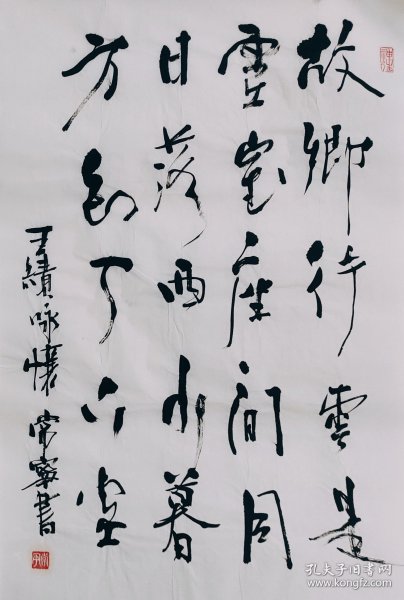 故鄉行雲是
虛室座間同
日落西山暮
方知天下空
王績咏懷 常寧書
孔夫子旧书网
www.kongfz.com